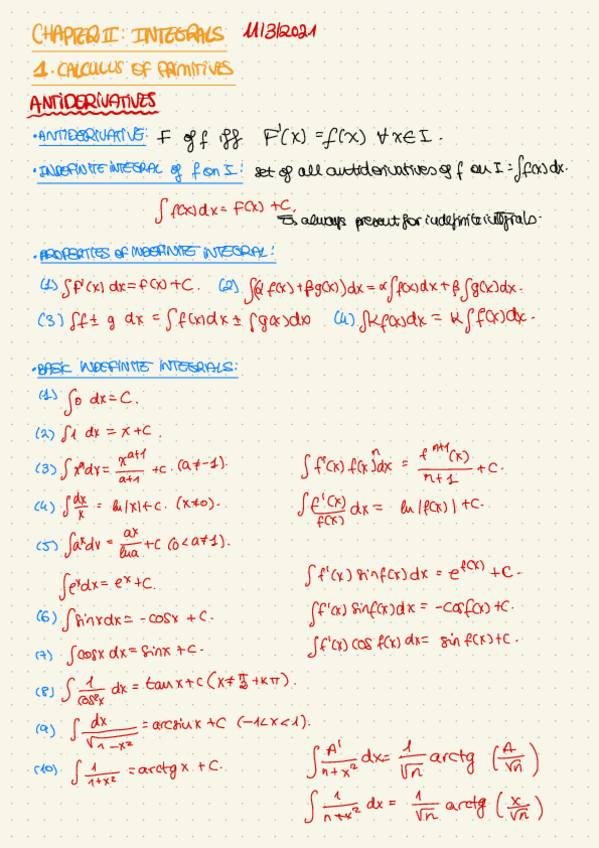 CHAPTER II: INTEGRALS 11/3/2021
1. CALCULUS OF PRIMITIVES
ANTIDERIVATIVES
·ANTIDERIVATIVE: F of f iff F'(x) = f(x) ∀x∈I.
·INDEFINITE INTEGRAL of f on I: set of all antiderivatives of f on I = ∫f(x)dx.
∫f(x)dx = F(x) + C.
↳ always present for indefinite integrals.
·PROPERTIES OF INDEFINITE INTEGRAL:
(1) ∫f'(x) dx = f(x) + C. (2) ∫(α f(x) + βg(x))dx = α∫f(x)dx + β∫g(x)dx.
(3) ∫f ± g dx = ∫f(x)dx ± ∫g(x)dx (4) ∫kf(x)dx = k∫f(x)dx.
·BASIC INDEFINITE INTEGRALS:
(1) ∫0 dx = C.
(2) ∫1 dx = x + C.
(3) ∫xᵃdx = xᵃ⁺¹/(a+1) + C. (a≠-1). ∫f'(x) f(x)ⁿdx = fⁿ⁺¹(x)/(n+1) + C.
(4) ∫dx/x = ln|x| + C. (x≠0). ∫f'(x)/f(x) dx = ln|f(x)| + C.
(5) ∫aˣdx = aˣ/lna + C (0<a≠1).
∫eˣdx = eˣ + C. ∫f'(x) sinf(x)dx = e^f(x) + C.
(6) ∫sinxdx = -cosx + C. ∫f'(x) sinf(x)dx = -cosf(x) + C.
(7) ∫cosx dx = sinx + C. ∫f'(x) cos f(x) dx = sin f(x) + C.
(8) ∫1/cos²x dx = tanx + C (x≠π/2 + kπ).
(9) ∫dx/√(1-x²) = arcsinx + C (-1<x<1).
(10) ∫1/(1+x²) = arctg x + C. ∫A'/(n+x²) dx = 1/√n arctg (A/√n)
∫1/(n+x²) dx = 1/√n arctg (x/√n)